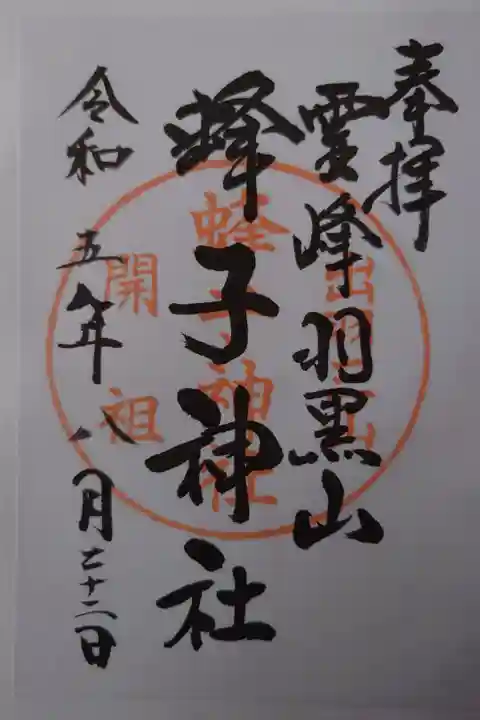 奉拝
霊峰羽黒山
蜂子神社
令和五年八月二十二日
出羽三山
蜂子神社
開祖